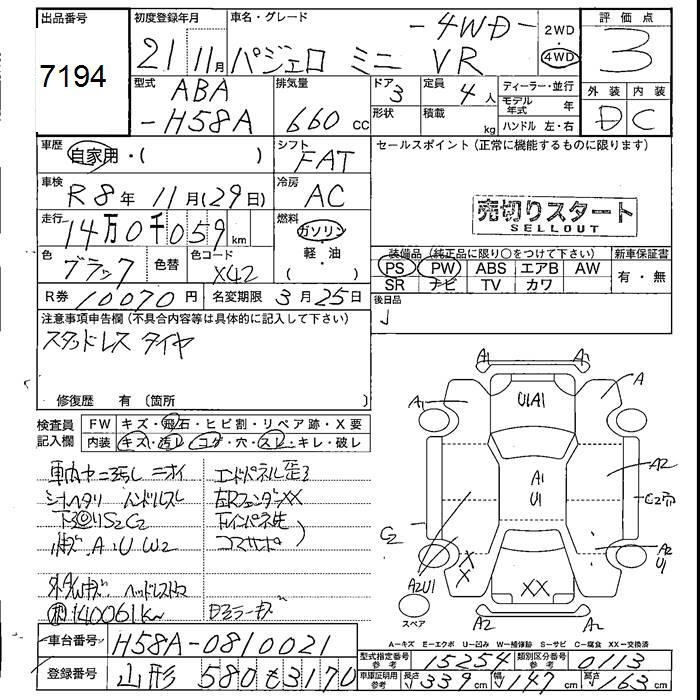 出品番号
7194
初度登録年月
21 11月
車名・グレード
-4WD-
パジェロ ミニ VR
2WD
4WD
評価点
3
型式
ABA
-H58A
排気量
660 cc
ドア
3
形状
定員
4人
積載
kg
ディーラー・並行
モデル年式 年
ハンドル 左・右
外装 内装
D C
車歴
自家用・( )
シフト
FAT
セールスポイント(正常に機能するものに限ります)
車検
R8年 11月(29日)
冷房
AC
売切りスタート
SELLOUT
走行
14万0千059km
燃料
ガソリン
軽・油
( )
色
ブラック
色替
色コード
X42
装備品(純正品に限り○をつけて下さい)
新車保証書
PS PW ABS エアB AW
SR ナビ TV カワ
有・無
R券 10070円
名変期限 3月25日
後日品
注意事項申告欄(不具合内容等は具体的に記入して下さい)
スタッドレス タイヤ
修復歴 有 (箇所 )
検査員記入欄
FW キズ・飛石・ヒビ割・リペア跡・X要
内装 キズ・汚レ・コゲ・穴・スレ・キレ・破レ
車内ヤニ汚レ ニオイ
シートヘタリ ハンドルスレ
エンドパネル歪
コマサボ
140061Km
A1 A1
A1 A
U1A1
A1
U1
A2
C2
C2
A2U1
A2
U1
XX
XX
A2 A2
スペア
A-キズ E-エクボ U-凹み W-補修跡 S-サビ C-腐食 XX-交換済
車台番号 H58A-0810021
登録番号 山形 580 そ3170
型式指定番号 参考 15254
類別区分番号 参考 0113
車庫証明用 参考 長さ 339cm 幅 147cm 高さ 163cm